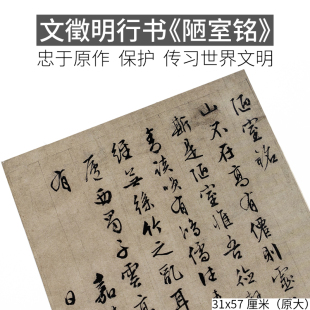 文徵明行书《陋室铭》
忠于原作 保护 传习世界文明
陋室銘
山不在高有僊則靈
斯是陋室惟吾德
青談笑有鴻儒往
經無絲竹之亂耳
廬西蜀子雲亭
有
嘉
日
31x57 厘米（原大）